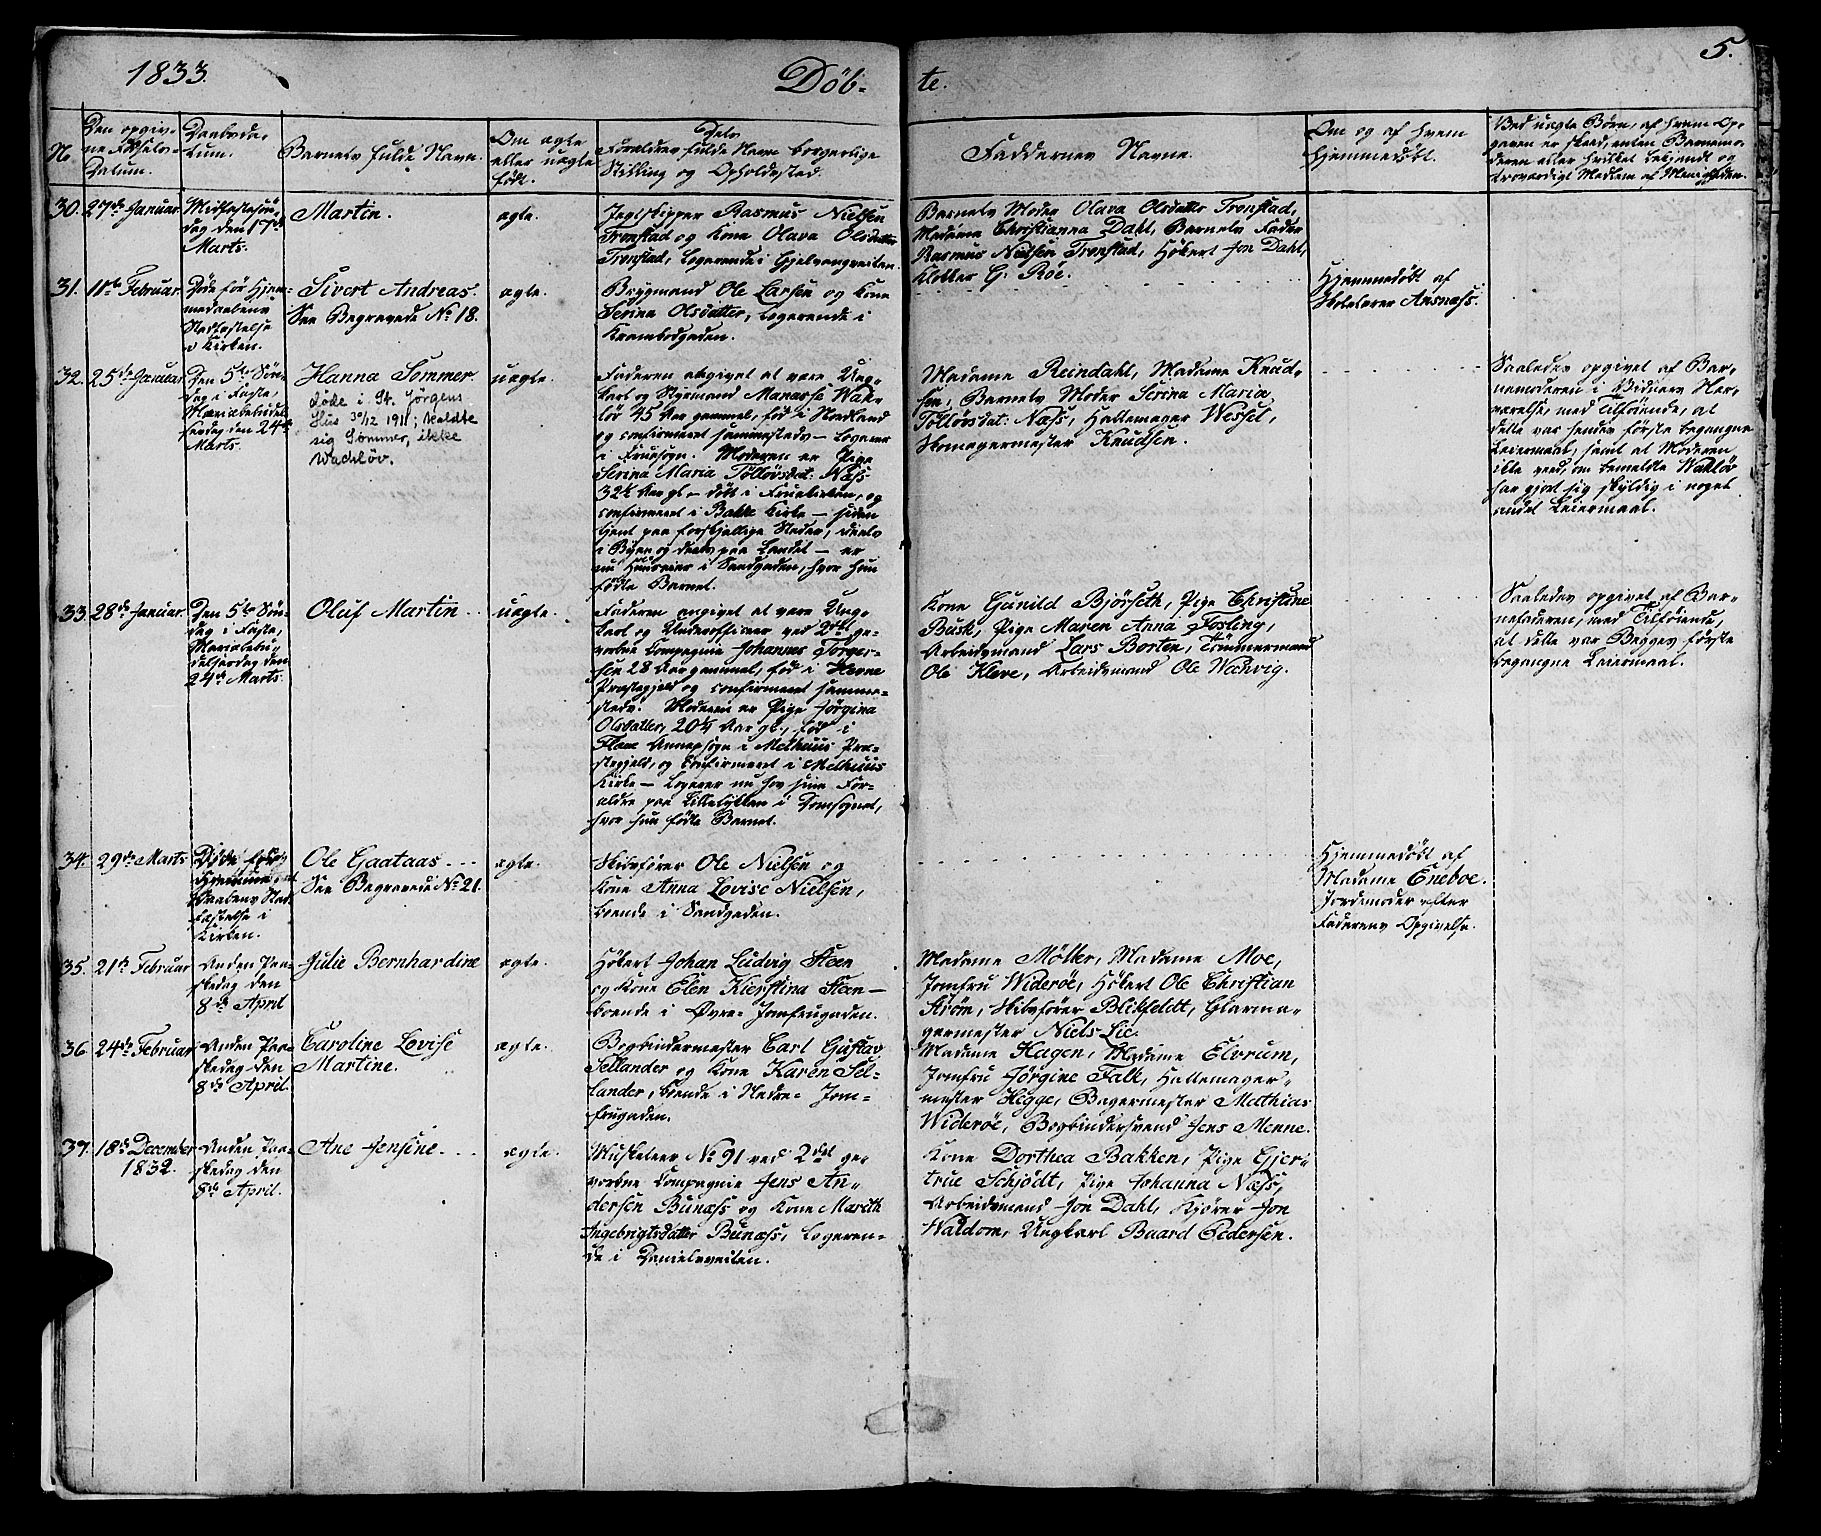 1833.
Döb-
te.
5.
No
Den opgiv-
ne Födsels-
Datum.
Daabsda-
tum.
Barnets fulde Navn.
Om ægte
eller uægte
födt.
Dets
Forældres fulde Navn borgerlige
Stilling og Opholdssted.
Faddernes Navne.
Om og af hvem
hjemmedöbt.
Ved uægte Börn, af hvem Op-
gaven er skeed, enten Barnemo-
deren eller hvilket bekjendt og
troværdigt Medlem af Menigheden.
30.
27de Januar.
Midfastesön-
dag den 17de
Marts.
Martin.
ægte.
Jegtskipper Rasmus Nielsen
Tronstad og Kone Olava Olsdatter
Tronstad, logerende i Gjelvangveiten.
Barnets Moder Olava Olsdatter Tronstad,
Madame Christianna Dahl, Barnets Fader
Rasmus Nielsen Tronstad, Höker Jon Dahl,
Klokker G. Roe.
31.
11te Februar.
Döde för Hjem-
medaabens
Stadfæstelse
i Kirken.
Sivert Andreas.
See Begravede No 18.
ægte.
Brygmand Ole Larsen og Kone
Serina Olsdatter, logerende i
Krambodgaden.
Hjemmedöbt af
Skolelærer Aasnæss.
32.
25de Januar
Den 5te Sön-
dag i Faste,
Mariæbebudel-
sesdag den 24de
Marts.
Hanna Sommer.
Döde i St. Jörgens
Hus 30/12 1911; kaldte
sig Sommer, ikke
Wachlöv.
uægte.
Faderen opgivet at være Ung-
karl og Styrmand Manasse Wak-
lör 45 Aar gammel, föd i Stadland
og confirmeret sammesteds — logerer
i Fruesogn. Moderen er Pige
Serina Maria Tollörsdat. Næss
32½ Aar gl. — döbt i Fruekirken, og
confirmeret i Bakke Kirke — siden
tjent paa forskjellige Steder, deels
i Byen og deels paa Landet — er
nu Huusleier i Sandgaden, hvor hun
födte Barnet.
Madame Reindahl, Madame Knud-
sen, Barnets Moder Serina Maria
Tollörsdat: Næss, Hattemager Wessel,
Skomagermester Knudsen.
Saaledes opgivet af Bar-
nemoderen i Vidners Nær-
værelse, med Tilföiende, at
dette var hendes förste begangne
Leiermaal, samt at Moderen
ikke veed, om bemeldte Waklör
har gjort sig skyldig i noget
andet Leiermaal.
33.
28de Januar.
Den 5te Sön-
dag i Faste,
Mariæbebu-
delsesdag den
24de Marts.
Oluf Martin
uægte.
Faderen angivet at være Ung-
karl og Underofficer ved 2det ge-
vorbne Compagnie Johannes Torger-
sen 28 Aar gammel, föd i Hevne
Præstegjeld og confirmeret samme-
steds. Moderen er Pige Jörgina
Olsdatter, 20¼ Aar gl., föd i
Flaae Annexsogn i Melhuus Præ-
stegjeld, og confirmeret i Melhuus
Kirke — logerer nu hos sine For-
ældre paa Lillebykken i Domsognet,
hvor hun födte Barnet.
Kone Gunild Björseth, Pige Christine
Busk, Pige Maren Anna Fosling,
Arbeidsmand Lars Borten, Tömmermand
Ole Kleve, Arbeidsmand Ole Wedvig.
Saaledes opgivet af Bar-
nefaderen, med Tilföiende,
at dette var Begges förste
begangne Leiermaal.
34.
29de Marts
Döde förend
Hjemme-
daabens Stad-
fæstelse i
Kirken.
Ole Gaataas
See Begravede No 21.
ægte.
Skibsförer Ole Nielsen og
Kone Anna Lovise Nielsen,
boende i Sandgaden.
Hjemmedöbt af
Madame Eneboe.
Jordemoder efter
Faderens Opgivelse.
35.
21de Februar
Anden Paa-
skedag den
8de April
Julie Bernhardine
ægte.
Höker Johan Ludvig Steen
og Kone Elen Kierstina Steen —
boende i Övre Jomfrugaden.
Madame Möller, Madame Moe,
Jomfru Wideröe, Höker Ole Christian
Ström, Skibsförer Blikfeldt, Glarma-
germester Niels Lie.
36.
24de Februar
Anden Paa-
skedag den
8de April.
Caroline Lovise
Martine.
ægte.
Bogbindermester Carl Gustav
Sellander og Kone Karen Sel-
lander, boende i Nedre Jom-
frugaden.
Madame Hagen, Madame Elvrum,
Jomfru Jörgine Falk, Hattemager-
mester Hegge, Bagermester Mathias
Wideröe, Bogbindersvend Jens Menne.
37.
18de December
1832.
Anden Paa-
skedag den
8de April.
Ane Jensine.
ægte.
Musketeer No 91 ved 2det ge-
vorbne Compagnie Jens An-
dersen Bunæss og Kone Marith
Ingebrigtsdatter Bunæss, logeren-
de i Danielsveiten.
Kone Dorthea Bakken, Pige Gjer-
true Schjödt, Pige Johanna Næss,
Arbeidsmand Jon Dahl, Kjörer Jon
Waldom, Ungkarl Baard Pedersen.